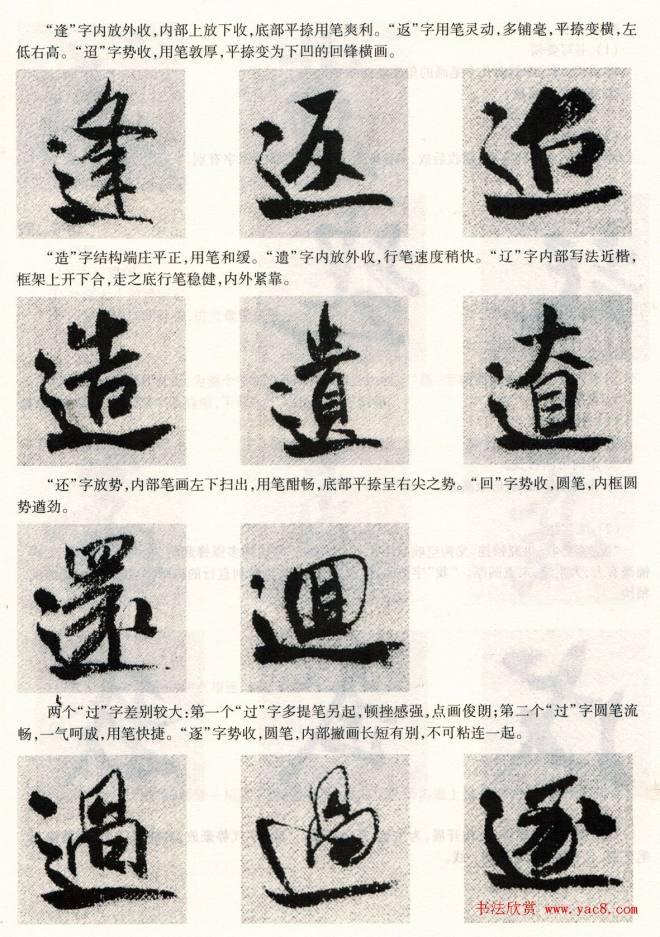 “逢”字内放外收,内部上放下收,底部平捺用笔爽利。“返”字用笔灵动,多铺毫,平捺变横,左
低右高。“迢”字势收,用笔敦厚,平捺变为下凹的回锋横画。
逢 返 迢
“造”字结构端庄平正,用笔和缓。“遗”字内放外收,行笔速度稍快。“辽”字内部写法近楷,
框架上开下合,走之底行笔稳健,内外紧靠。
造 遺
“还”字放势,内部笔画左下扫出,用笔酣畅,底部平捺呈右尖之势。“回”字势收,圆笔,内框圆
势遒劲。
還 迴
两个“过”字差别较大:第一个“过”字多提笔另起,顿挫感强,点画俊朗;第二个“过”字圆笔流
畅,一气呵成,用笔快捷。“逐”字势收,圆笔,内部撇画长短有别,不可粘连一起。
過 過 逐
书法欣赏 www.yac8.com